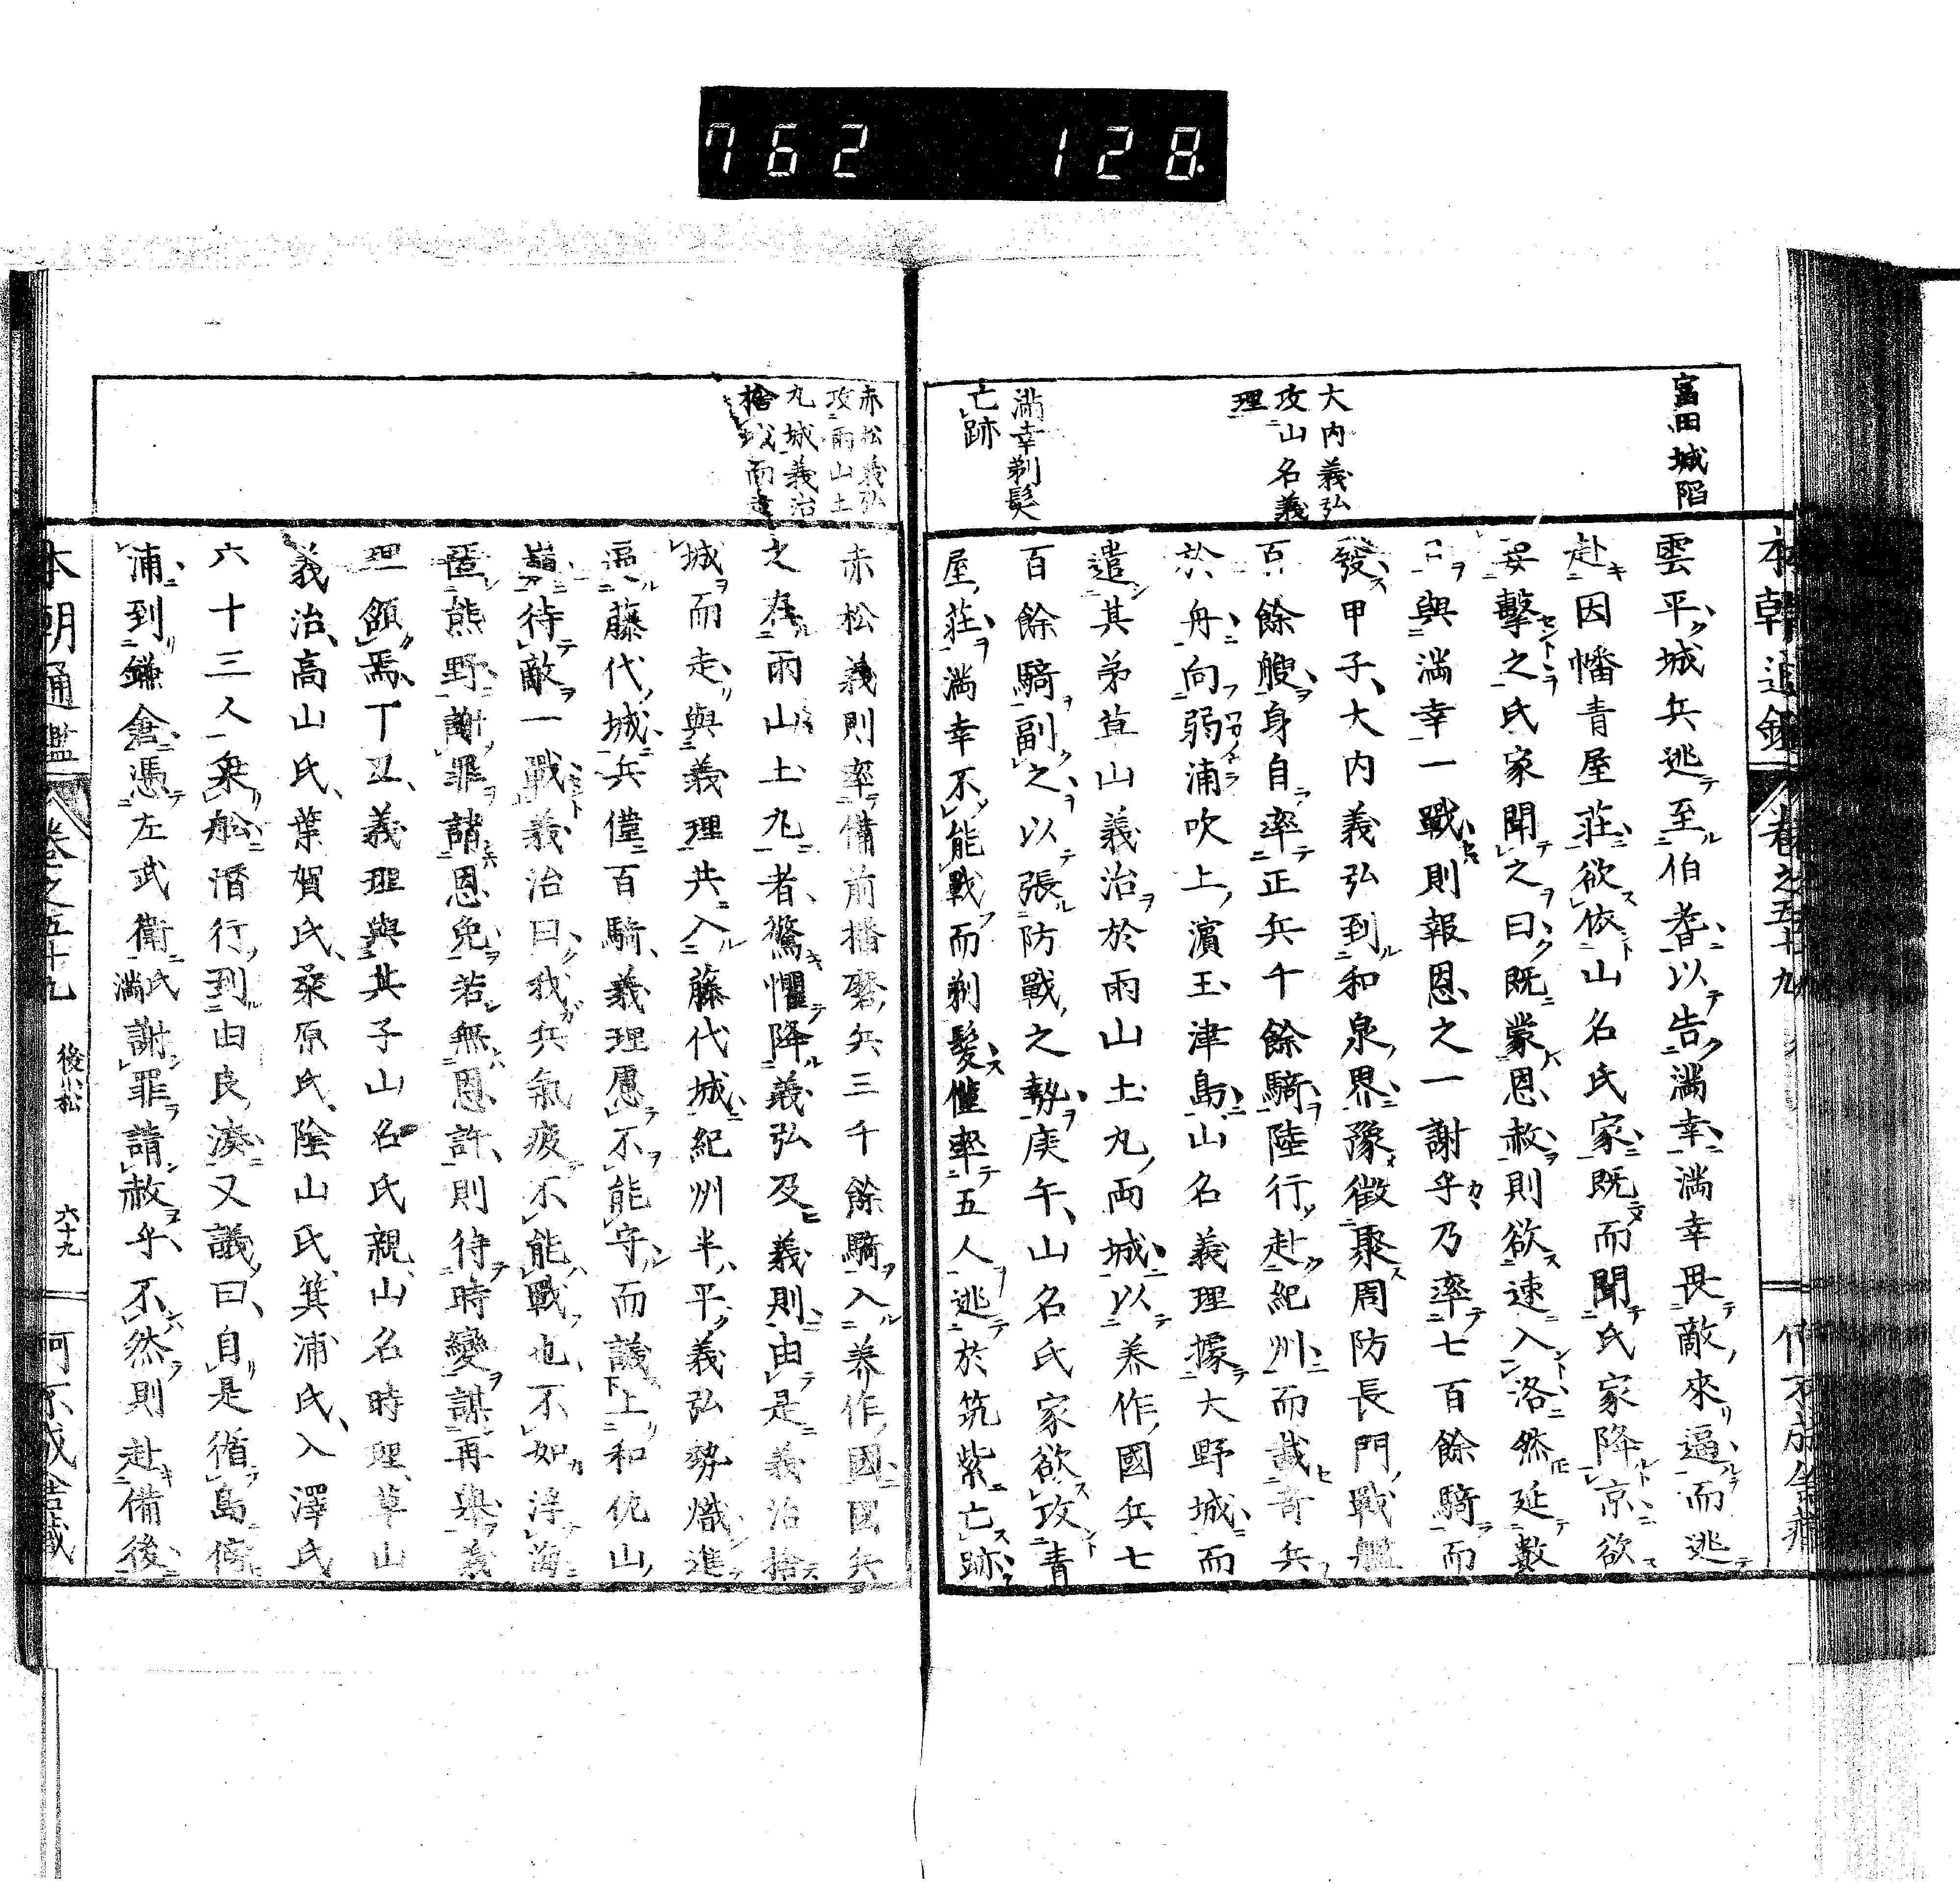 762 128
本朝通鑑 卷之五十九
富田城陷
大内義弘
攻山名義
理
滿幸剃髮
亡跡
雲平城兵逃至伯耆以告滿幸滿幸畏敵來逼而逃
赴因幡青屋莊欲依山名氏家既而聞氏家降京欲
擊之氏家聞之曰既蒙恩赦則欲速入洛然延數
日與滿幸一戰則報恩之一謝乎乃率七百餘騎而
發甲子大内義弘到和泉界豫徵聚周防長門戰艦
百餘艘身自率正兵千餘騎陸行赴紀州而載奇兵
於舟向弱浦吹上濱玉津島山名義理據大野城而
遣其弟草山義治於雨山土丸兩城以養作國兵七
百餘騎副之以張防戰之勢庚午山名氏家欲攻青
屋莊滿幸不能戰而剃髮僅率五人逃於筑紫亡跡
赤松義弘
攻雨山土
九城義治
捨城而逹
赤松義則率備前播磨兵三千餘騎入養作國國兵
之在雨山土丸者驚懼降義弘及義則由是義治捨
城而走與義理共入藤代城紀州半平義弘勢熾進
逼藤代城兵僅百騎義理慮不能守而議上和佐山
嶺待敵一戰義治曰我兵氣疲不能戰也不如浮海
匿熊野謝罪請恩免若無恩許則待時變謀再舉義
理領焉丁丑義理與其子山名氏親山名時理草山
義治高山氏葉賀氏桑原氏陰山氏箕浦氏入澤氏
六十三人乘船潛行到由良湊又議曰自是循島傍
浦到鎌倉憑左武衛氏滿謝罪請赦乎不然則赴備後
本朝通鑑 卷之五十九 後小松 六十九